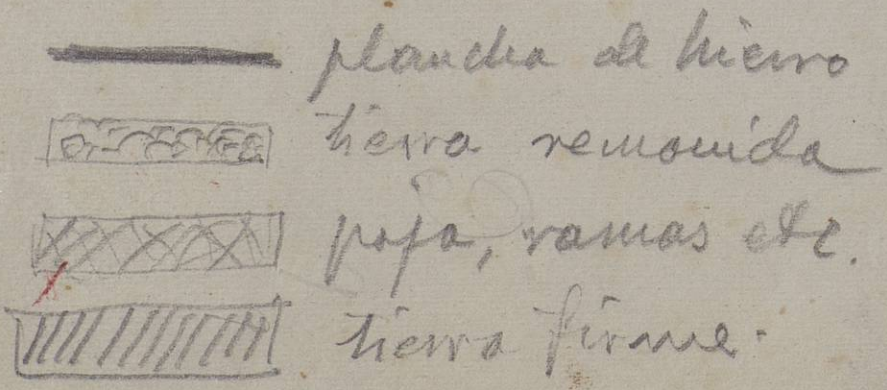 plancha de hierro
tierra removida
paja, ramas etc.
tierra firme.